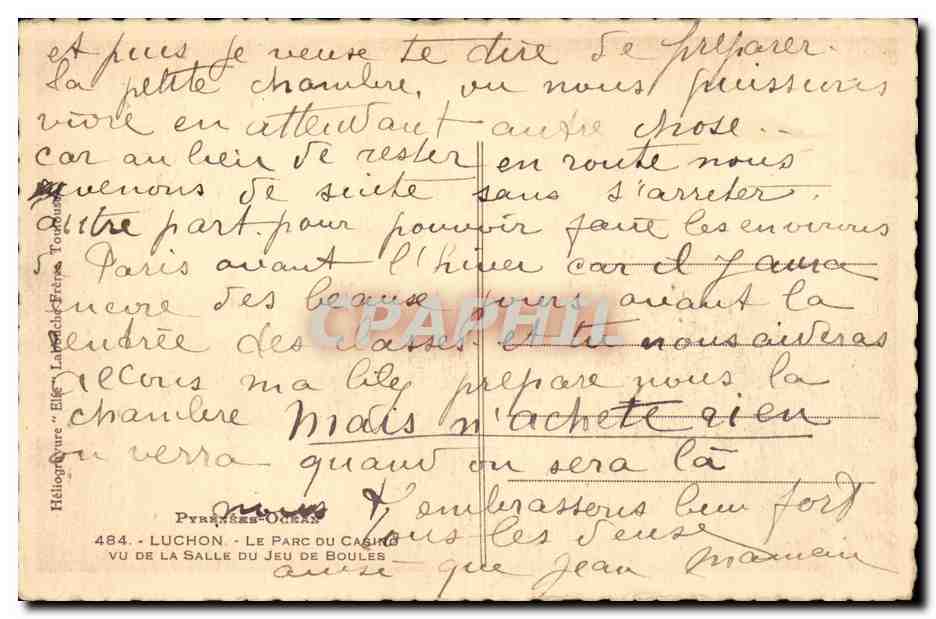 et puis je veuse te dire de préparer.
la petite chambre, ou nous puissions
vivre en attendant autre chose..
car au lieu de rester en route nous
venons de suite sans s'arreter.
autre part. pour pouvoir faire les environs
de Paris avant l'hiver car il y aura
encore des beause jours avant la
rentrée des classes et tu nous aideras
Allons ma lily prépare nous la
chambre Mais n'achete rien
on verra quand on sera là
nous t'embrassons bien fort
PYRÉNÉES-OCÉAN
tous les deuse
484. - LUCHON. - LE PARC DU CASINO
VU DE LA SALLE DU JEU DE BOULES
ausé que Jean
Héliogravure "Elfe" Labouche Frères, Toulouse
CPAPHIL